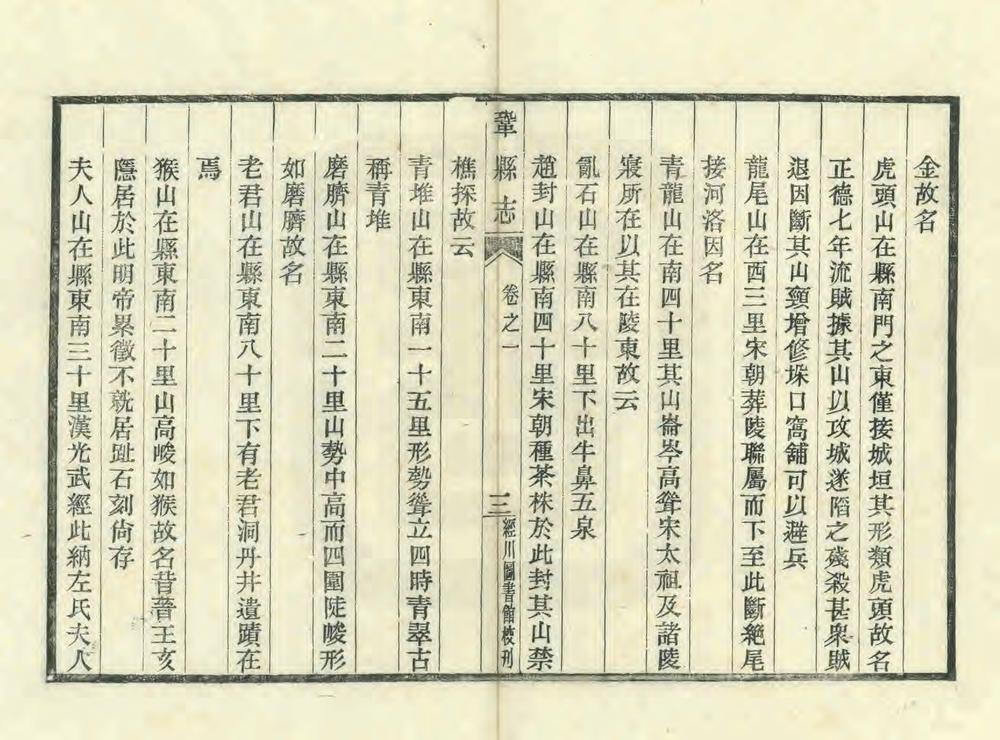 金故名
虎頭山在縣南門之東僅接城垣其形類虎頭故名
正德七年流賊據其山以攻城遂陷之殘殺甚衆賊
退因斷其山頸增修垜口窩鋪可以避兵
龍尾山在西三里宋朝葬陵聯屬而下至此斷絶尾
接河洛因名
青龍山在南四十里其山崙岑高聳宋太祖及諸陵
寢所在以其在陵東故云
亂石山在縣南八十里下出牛鼻五泉
趙封山在縣南四十里宋朝種茶株於此封其山禁
鞏縣志
卷之一
三
經川圖書館校刊
樵採故云
青堆山在縣東南一十五里形勢聳立四時青翠古
稱青堆
磨臍山在縣東南二十里山勢中高而四圍陡峻形
如磨臍故名
老君山在縣東南八十里下有老君洞丹井遺蹟在
焉
猴山在縣東南二十里山高峻如猴故名昔晉王亥
隱居於此明帝累徵不就居趾石刻尙存
夫人山在縣東南三十里漢光武經此納左氏夫人